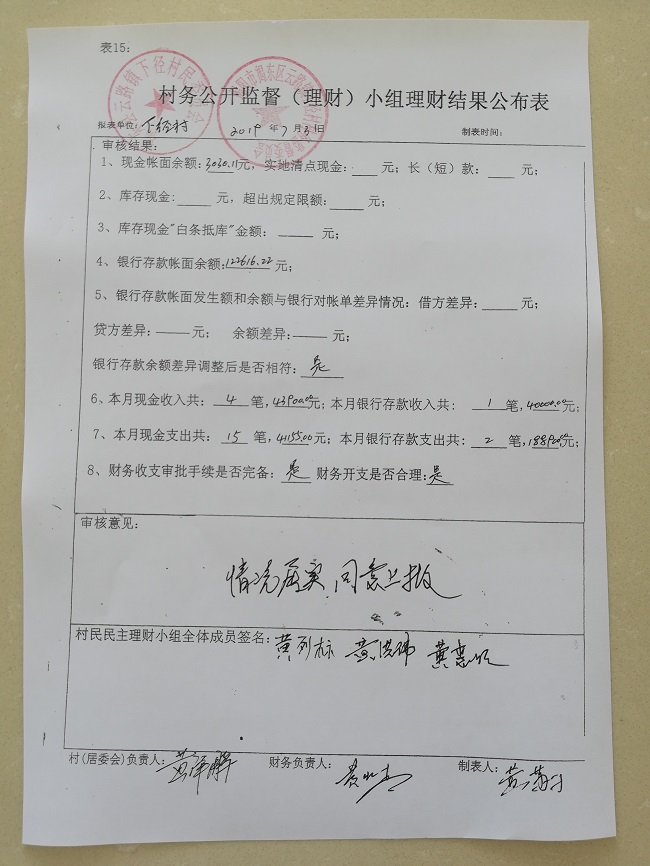 表15：
村务公开监督（理财）小组理财结果公布表
报表单位：下径村 2019年7月31日 制表时间：
审核结果：
1、现金帐面余额：3030.11元，实地清点现金：元；长（短）款：元；
2、库存现金：元，超出规定限额：元；
3、库存现金"白条抵库"金额：元；
4、银行存款帐面余额：122616.22元；
5、银行存款帐面发生额和余额与银行对帐单差异情况：借方差异：元；
贷方差异：元； 余额差异：元；
银行存款余额差异调整后是否相符：是
6、本月现金收入共：4笔，43900.00元；本月银行存款收入共：1笔，40000.00元；
7、本月现金支出共：15笔，41155.00元；本月银行存款支出共：2笔，元；
8、财务收支审批手续是否完备：是 财务开支是否合理：是
审核意见：
情况属实 同意上报
村民民主理财小组全体成员签名：黄列标
村(居委会)负责人： 财务负责人： 制表人：